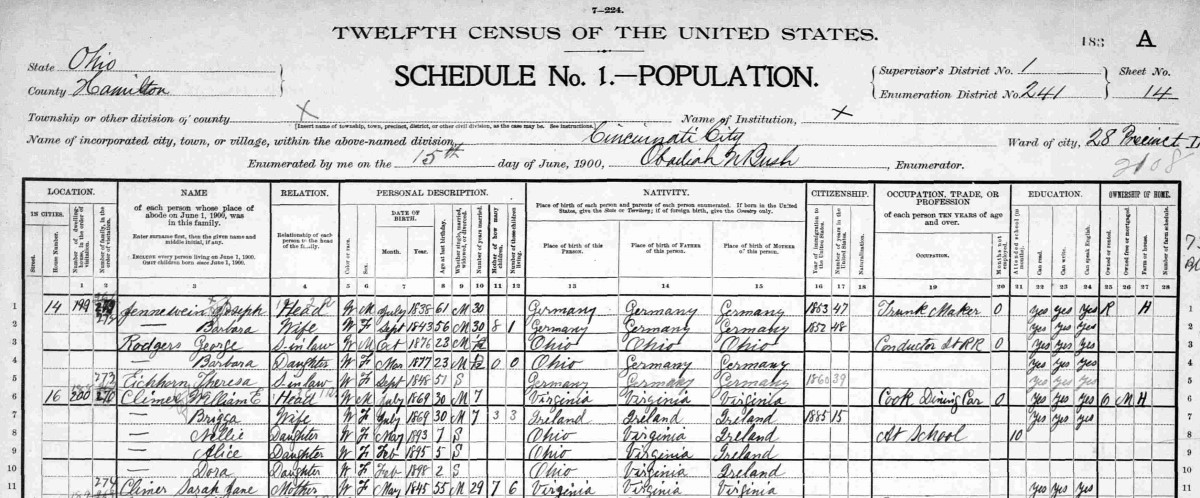 7—224.
TWELFTH CENSUS OF THE UNITED STATES.
183 A
State Ohio
County Hamilton
SCHEDULE No. 1.—POPULATION.
Supervisor's District No. 1 Sheet No.
Enumeration District No. 241 14
Township or other division of county X Name of Institution, X
[Insert name of township, town, precinct, district, or other civil division, as the case may be. See instructions.]
Name of incorporated city, town, or village, within the above-named division, Cincinnati City Ward of city, 28 Precinct
Enumerated by me on the 15th day of June, 1900, Obadiah N Bush, Enumerator.
LOCATION. NAME RELATION. PERSONAL DESCRIPTION. NATIVITY. CITIZENSHIP. OCCUPATION, TRADE, OR PROFESSION EDUCATION. OWNERSHIP OF HOME.
IN CITIES. Street. House Number. Number of dwelling-house, in the order of visitation. Number of family, in the order of visitation.
of each person whose place of abode on June 1, 1900, was in this family.
Enter surname first, then the given name and middle initial, if any.
INCLUDE every person living on June 1, 1900.
OMIT children born since June 1, 1900.
Relationship of each person to the head of the family.
Color or race. Sex. DATE OF BIRTH. Month. Year. Age at last birthday. Whether single, married, widowed, or divorced. Number of years married. Mother of how many children. Number of these children living.
Place of birth of each person and parents of each person enumerated. If born in the United States, give the State or Territory; if of foreign birth, give the Country only.
Place of birth of this PERSON. Place of birth of FATHER of this person. Place of birth of MOTHER of this person.
Year of immigration to the United States. Number of years in the United States. Naturalization.
of each person TEN YEARS of age and over.
OCCUPATION. Months not employed.
Attended school (in months). Can read. Can write. Can speak English.
Owned or rented. Owned free or mortgaged. Farm or house. Number of farm schedule.
1 2 3 4 5 6 7 8 9 10 11 12 13 14 15 16 17 18 19 20 21 22 23 24 25 26 27 28
1 14 199 Jennewein Joseph Head W M July 1838 61 M 30 Germany Germany Germany 1853 47 Trunk Maker 0 Yes Yes Yes R H 1
2 — Barbara Wife W F Sept 1843 56 M 30 8 1 Germany Germany Germany 1852 48 Yes Yes Yes 2
3 Rodgers George S-in law W M Oct 1876 23 M Ohio Ohio Ohio Conductor St RR 0 Yes Yes Yes 3
4 — Barbara Daughter W F Mar 1877 23 M 0 0 Ohio Germany Germany Yes Yes Yes 4
5 273 Eichhorn Theresa S in law W F Sept 1848 51 S Germany Germany Germany 1860 39 Yes Yes Yes 5
6 16 200 Climer William E Head W M July 1869 30 M 7 Virginia Virginia Virginia Cook Dining Car 0 Yes Yes Yes O M H 6
7 — Brigga Wife W F July 1869 30 M 7 3 3 Ireland Ireland Ireland 1885 15 Yes Yes Yes 7
8 — Nellie Daughter W F May 1893 7 S Ohio Virginia Ireland At School 10 8
9 — Alice Daughter W F Feb 1895 5 S Ohio Virginia Ireland 9
10 — Dora Daughter W F Feb 1898 2 S Ohio Virginia Ireland 10
11 274 Climer Sarah Jane Mother W F May 1845 55 M 29 7 6 Virginia Virginia Virginia Yes Yes Yes 11